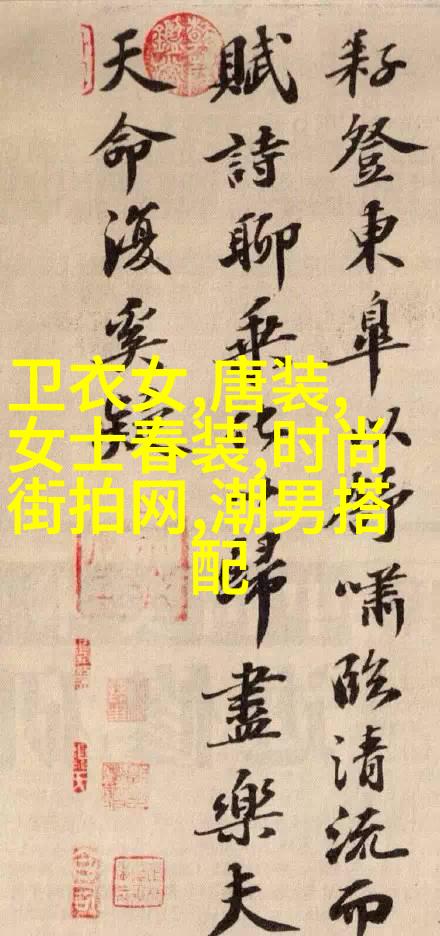 耔登東皐以舒嘯臨清流而
賦詩聊乘化以歸盡樂夫
天命復奚疑
卫衣女,唐装,
女士春装,时尚
街拍网,潮男搭
配